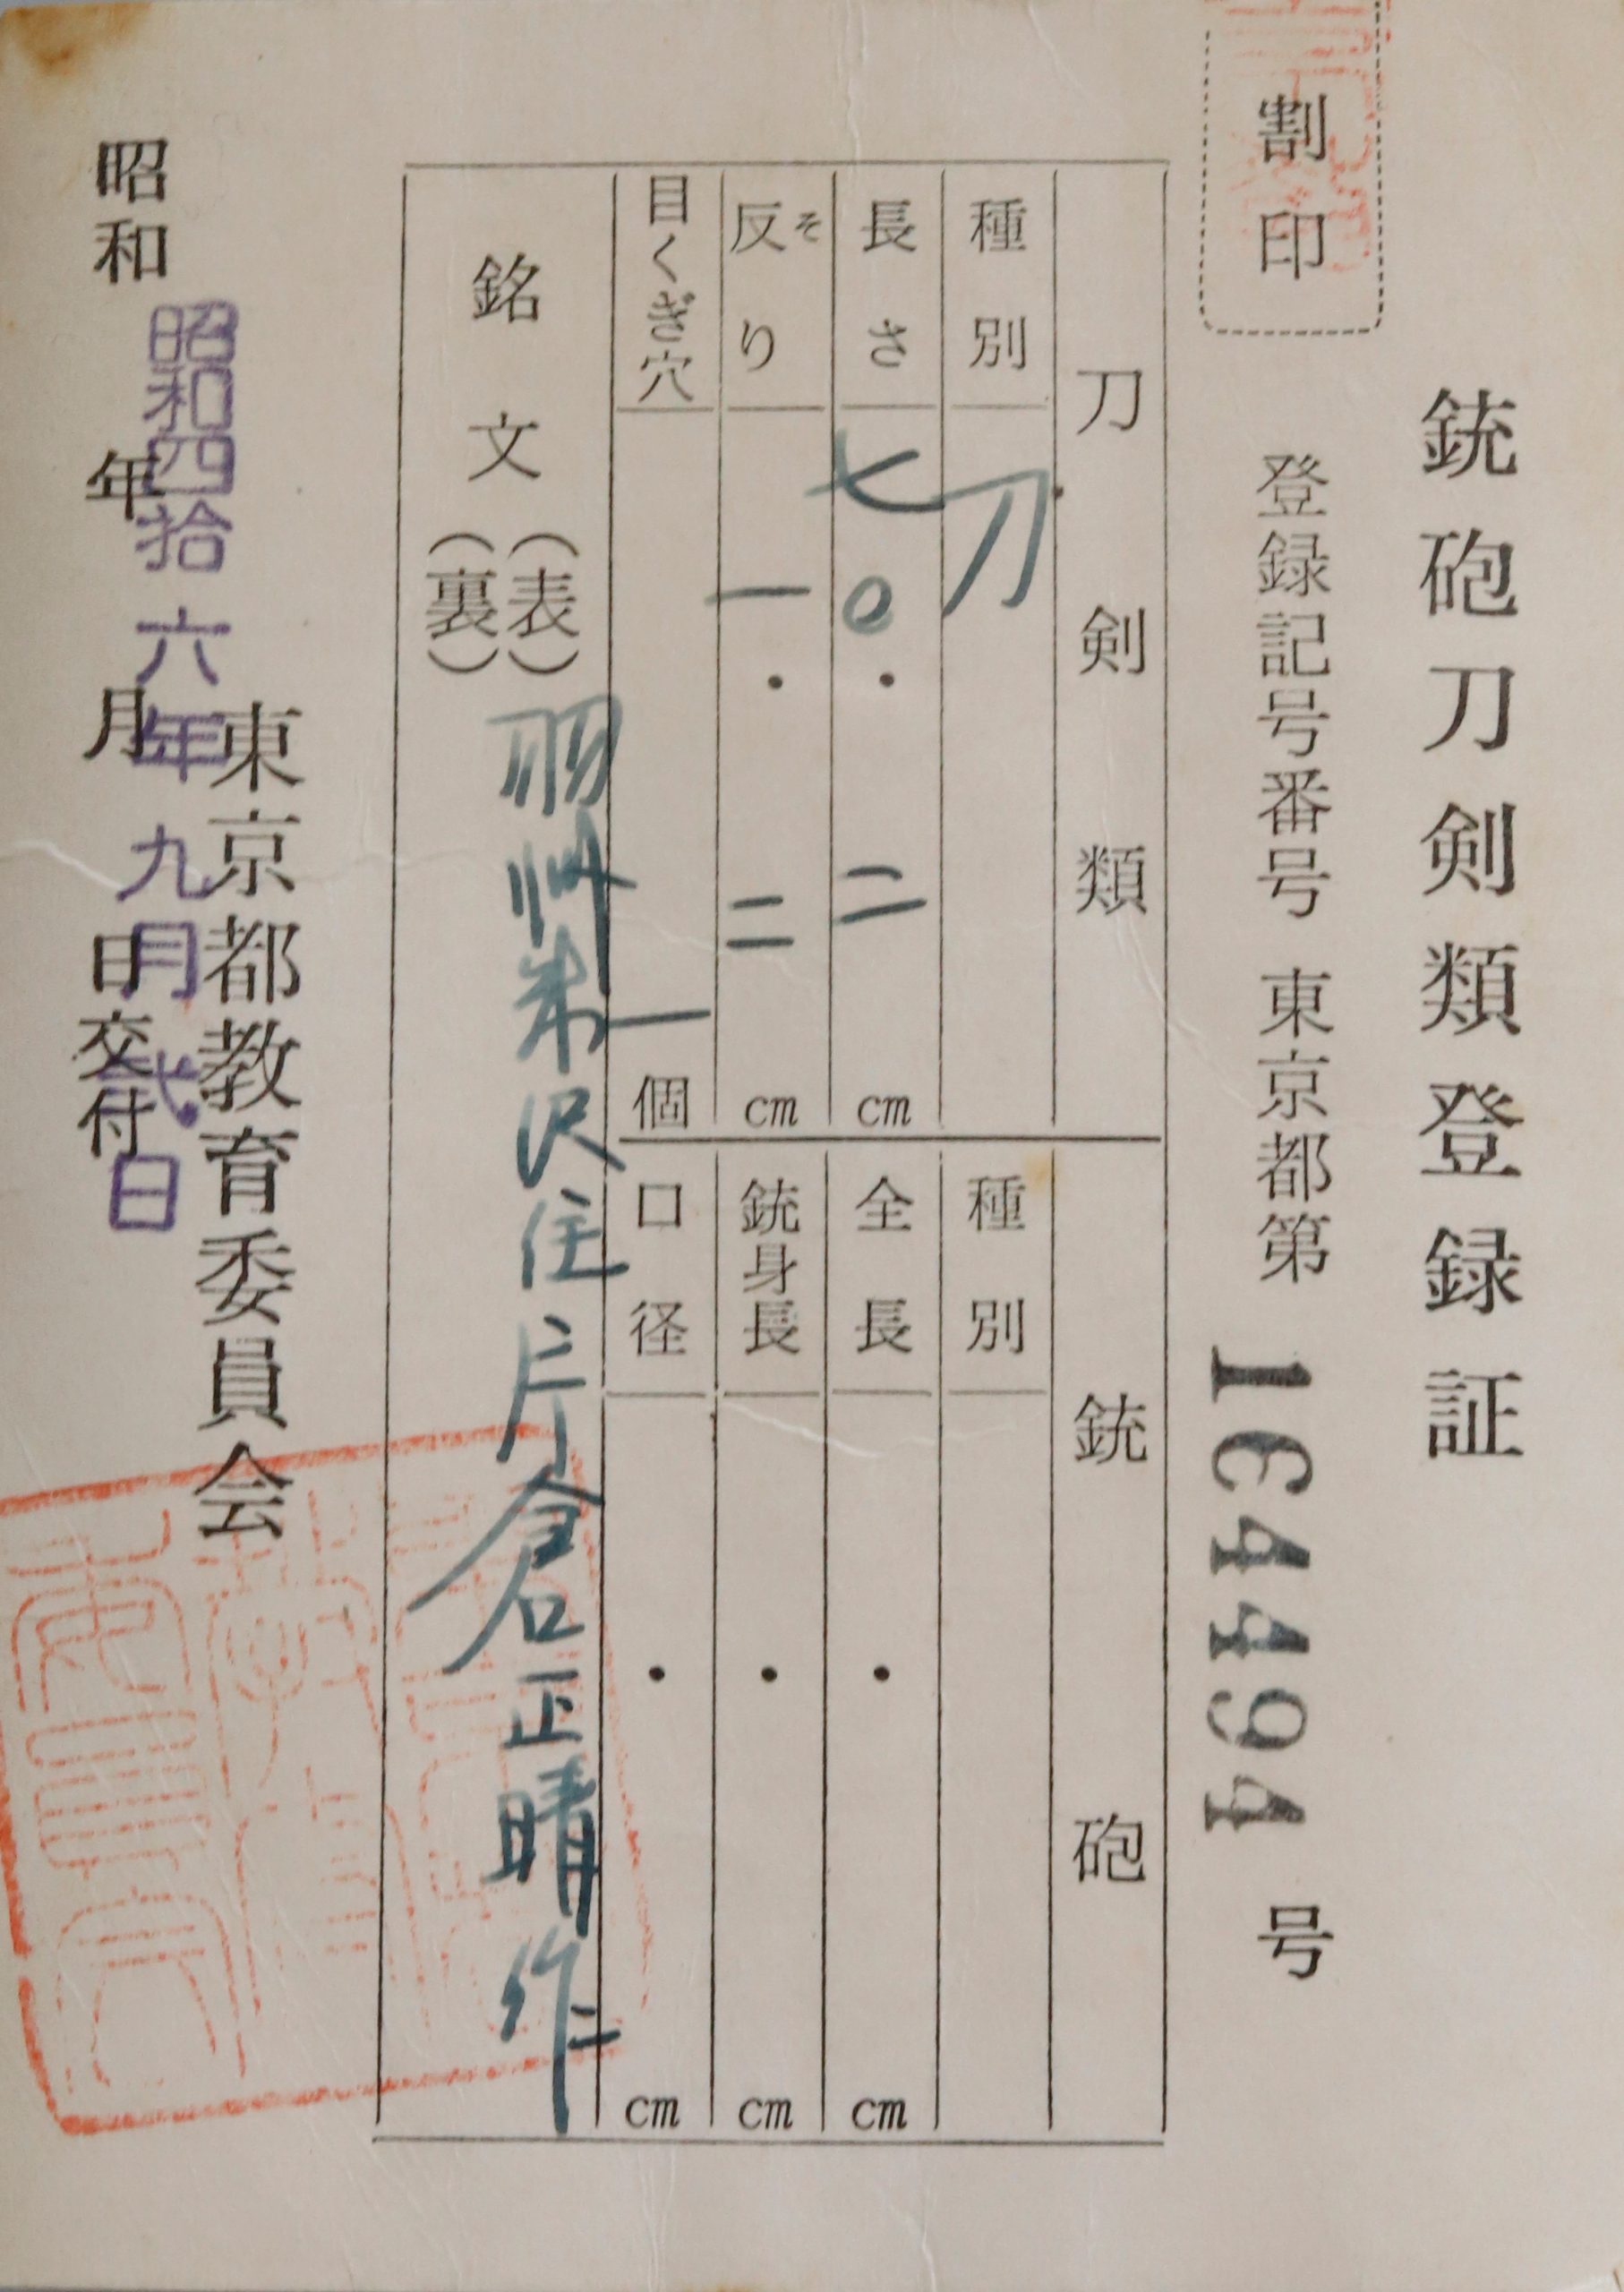 銃砲刀剣類登録証
割印
登録記号番号 東京都第 164494 号
刀剣類 銃砲
種別 刀 種別
長さ 七〇.二 cm 全長 . cm
反り そ 一.二 cm 銃身長 . cm
目くぎ穴 一 個 口径 . cm
銘文 (表) 羽州米沢住片倉正晴作
(裏)
東京都教育委員会
昭和四拾六年九月弐日
昭和 年 月 日交付